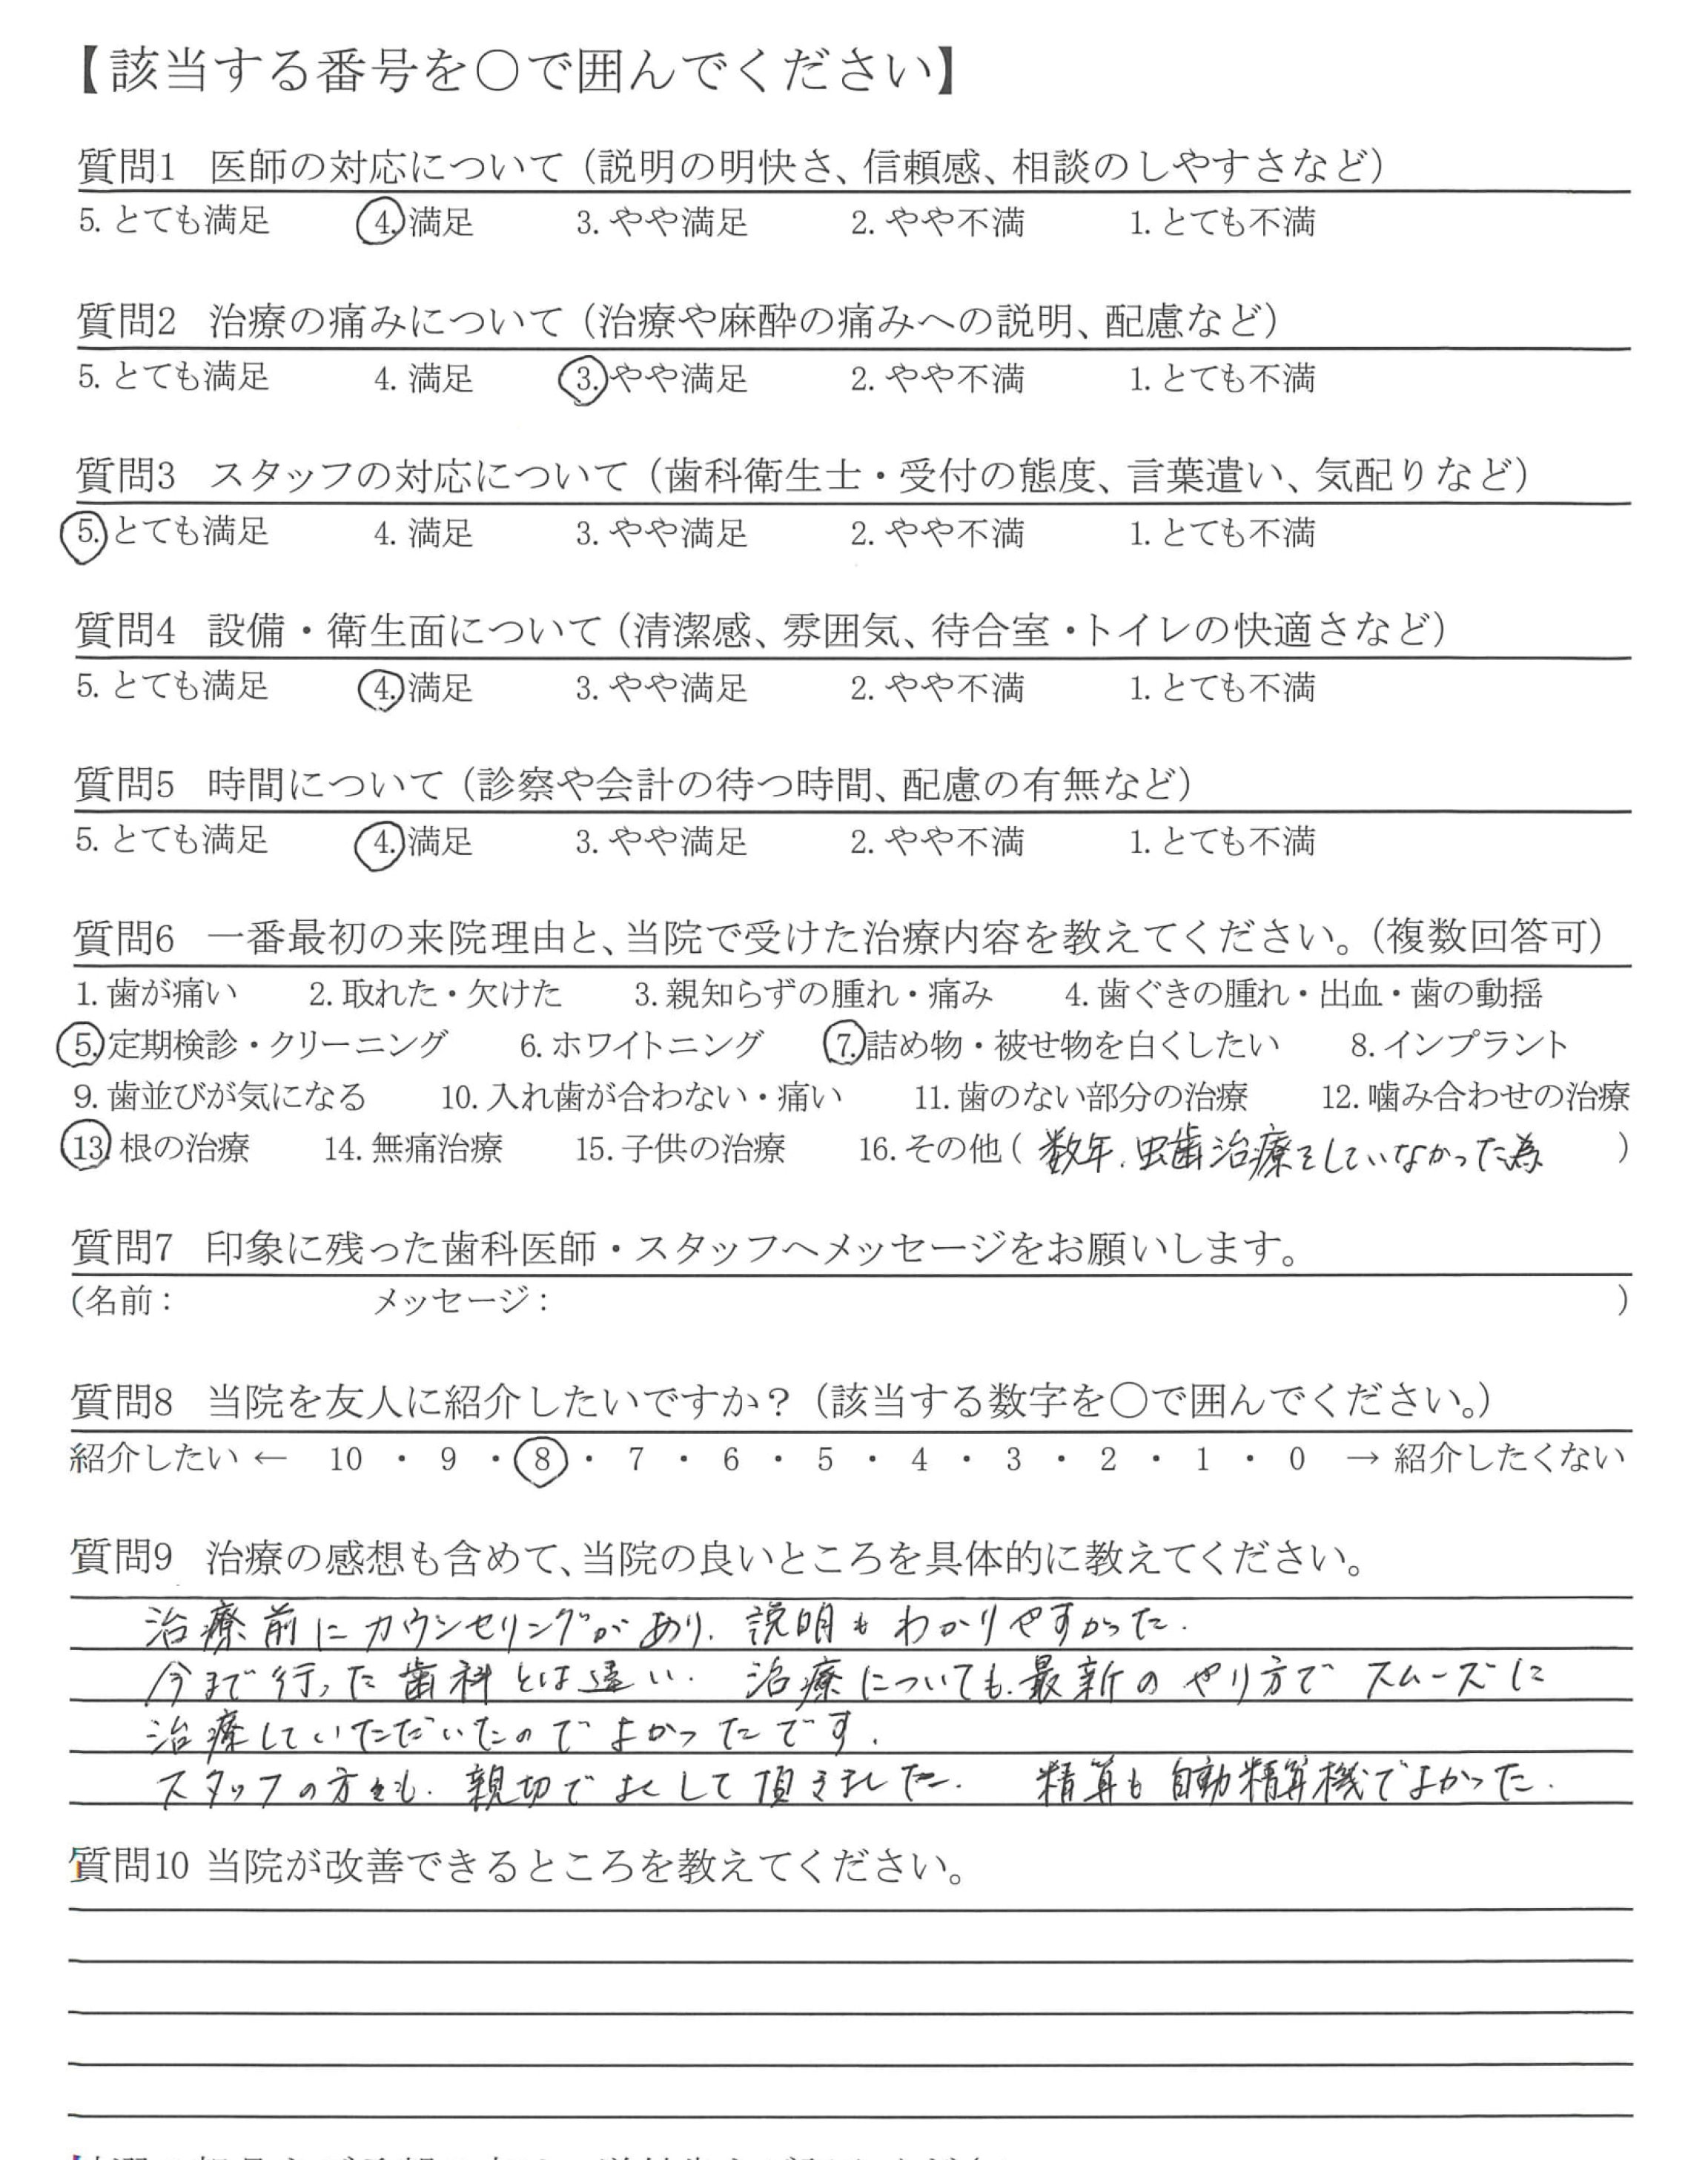 【該当する番号を○で囲んでください】
質問1 医師の対応について（説明の明快さ、信頼感、相談のしやすさなど）
5. とても満足 4. 満足 3. やや満足 2. やや不満 1. とても不満
質問2 治療の痛みについて（治療や麻酔の痛みへの説明、配慮など）
5. とても満足 4. 満足 3. やや満足 2. やや不満 1. とても不満
質問3 スタッフの対応について（歯科衛生士・受付の態度、言葉遣い、気配りなど）
5. とても満足 4. 満足 3. やや満足 2. やや不満 1. とても不満
質問4 設備・衛生面について（清潔感、雰囲気、待合室・トイレの快適さなど）
5. とても満足 4. 満足 3. やや満足 2. やや不満 1. とても不満
質問5 時間について（診察や会計の待つ時間、配慮の有無など）
5. とても満足 4. 満足 3. やや満足 2. やや不満 1. とても不満
質問6 一番最初の来院理由と、当院で受けた治療内容を教えてください。（複数回答可）
1. 歯が痛い 2. 取れた・欠けた 3. 親知らずの腫れ・痛み 4. 歯ぐきの腫れ・出血・歯の動揺
5. 定期検診・クリーニング 6. ホワイトニング 7. 詰め物・被せ物を白くしたい 8. インプラント
9. 歯並びが気になる 10. 入れ歯が合わない・痛い 11. 歯のない部分の治療 12. 噛み合わせの治療
13. 根の治療 14. 無痛治療 15. 子供の治療 16. その他（数年、虫歯治療をしていなかった為）
質問7 印象に残った歯科医師・スタッフへメッセージをお願いします。
（名前： メッセージ： ）
質問8 当院を友人に紹介したいですか？（該当する数字を○で囲んでください。）
紹介したい ← 10 ・ 9 ・ 8 ・ 7 ・ 6 ・ 5 ・ 4 ・ 3 ・ 2 ・ 1 ・ 0 → 紹介したくない
質問9 治療の感想も含めて、当院の良いところを具体的に教えてください。
治療前にカウンセリングがあり、説明もわかりやすかった。
今まで行った歯科とは違い、治療についても、最新のやり方でスムーズに
治療していただいたのでよかったです。
スタッフの方々も、親切でよくして頂きました。 精算も自動精算機でよかった。
質問10 当院が改善できるところを教えてください。